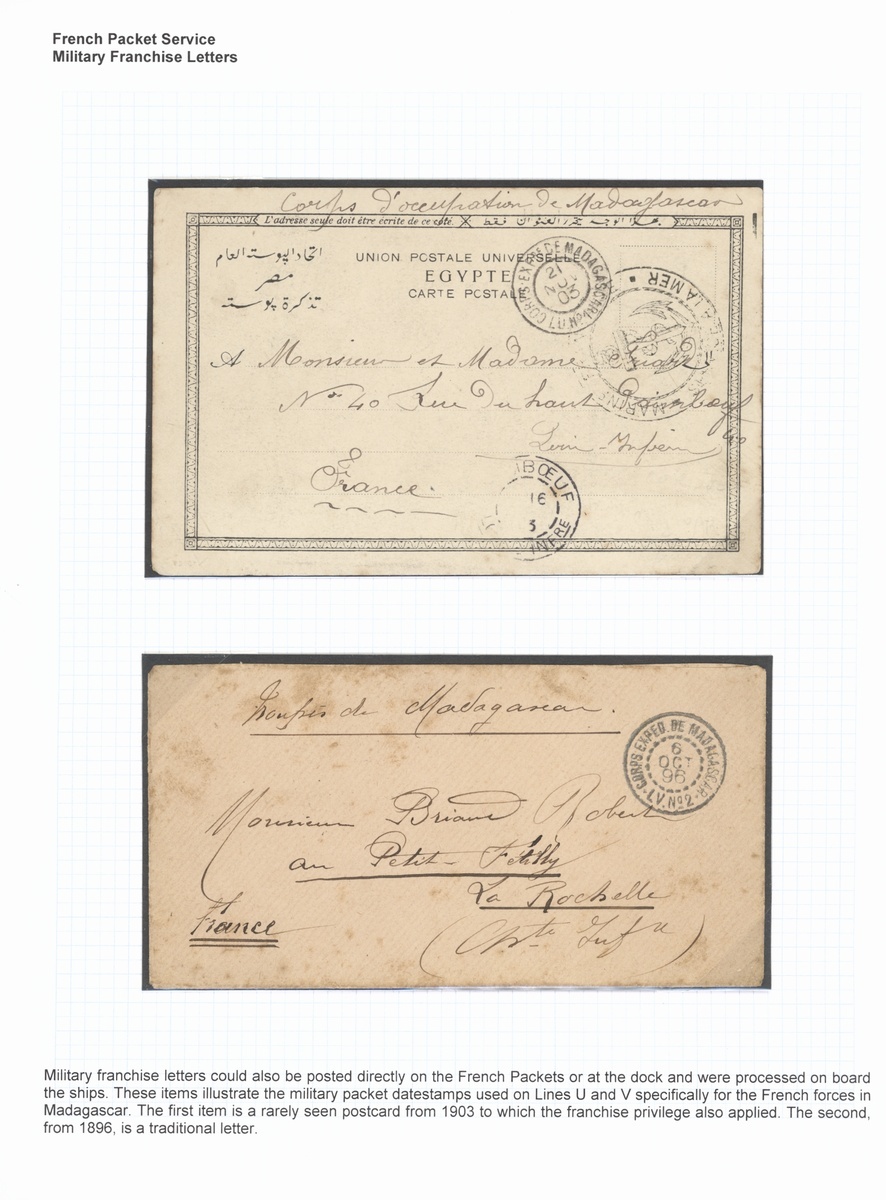 French Packet Service
Military Franchise Letters
Corps d'occupation de Madagascar
L'adresse seule doit être écrite de ce côté.
اتحاد البوسته العام
مصر
تذكرة بوسته
UNION POSTALE UNIVERSELLE
EGYPTE
CARTE POSTALE
CORPS EXPRE DE MADAGASCAR
21
NOV
03
LU No
MARINS
A LA MER
A Monsieur et Madame
No 40 Rue Du haut Paimboeuf
Loire-Infère
France.
IBŒUF
16
3
INFRE
Troupes de Madagascar.
CORPS EXPED. DE MADAGASCAR
6
OCT
96
LV. No 2
Monsieur Briand Robert
au Petit-Fétilly
La Rochelle
France
(Chte Infre)
Military franchise letters could also be posted directly on the French Packets or at the dock and were processed on board
the ships. These items illustrate the military packet datestamps used on Lines U and V specifically for the French forces in
Madagascar. The first item is a rarely seen postcard from 1903 to which the franchise privilege also applied. The second,
from 1896, is a traditional letter.